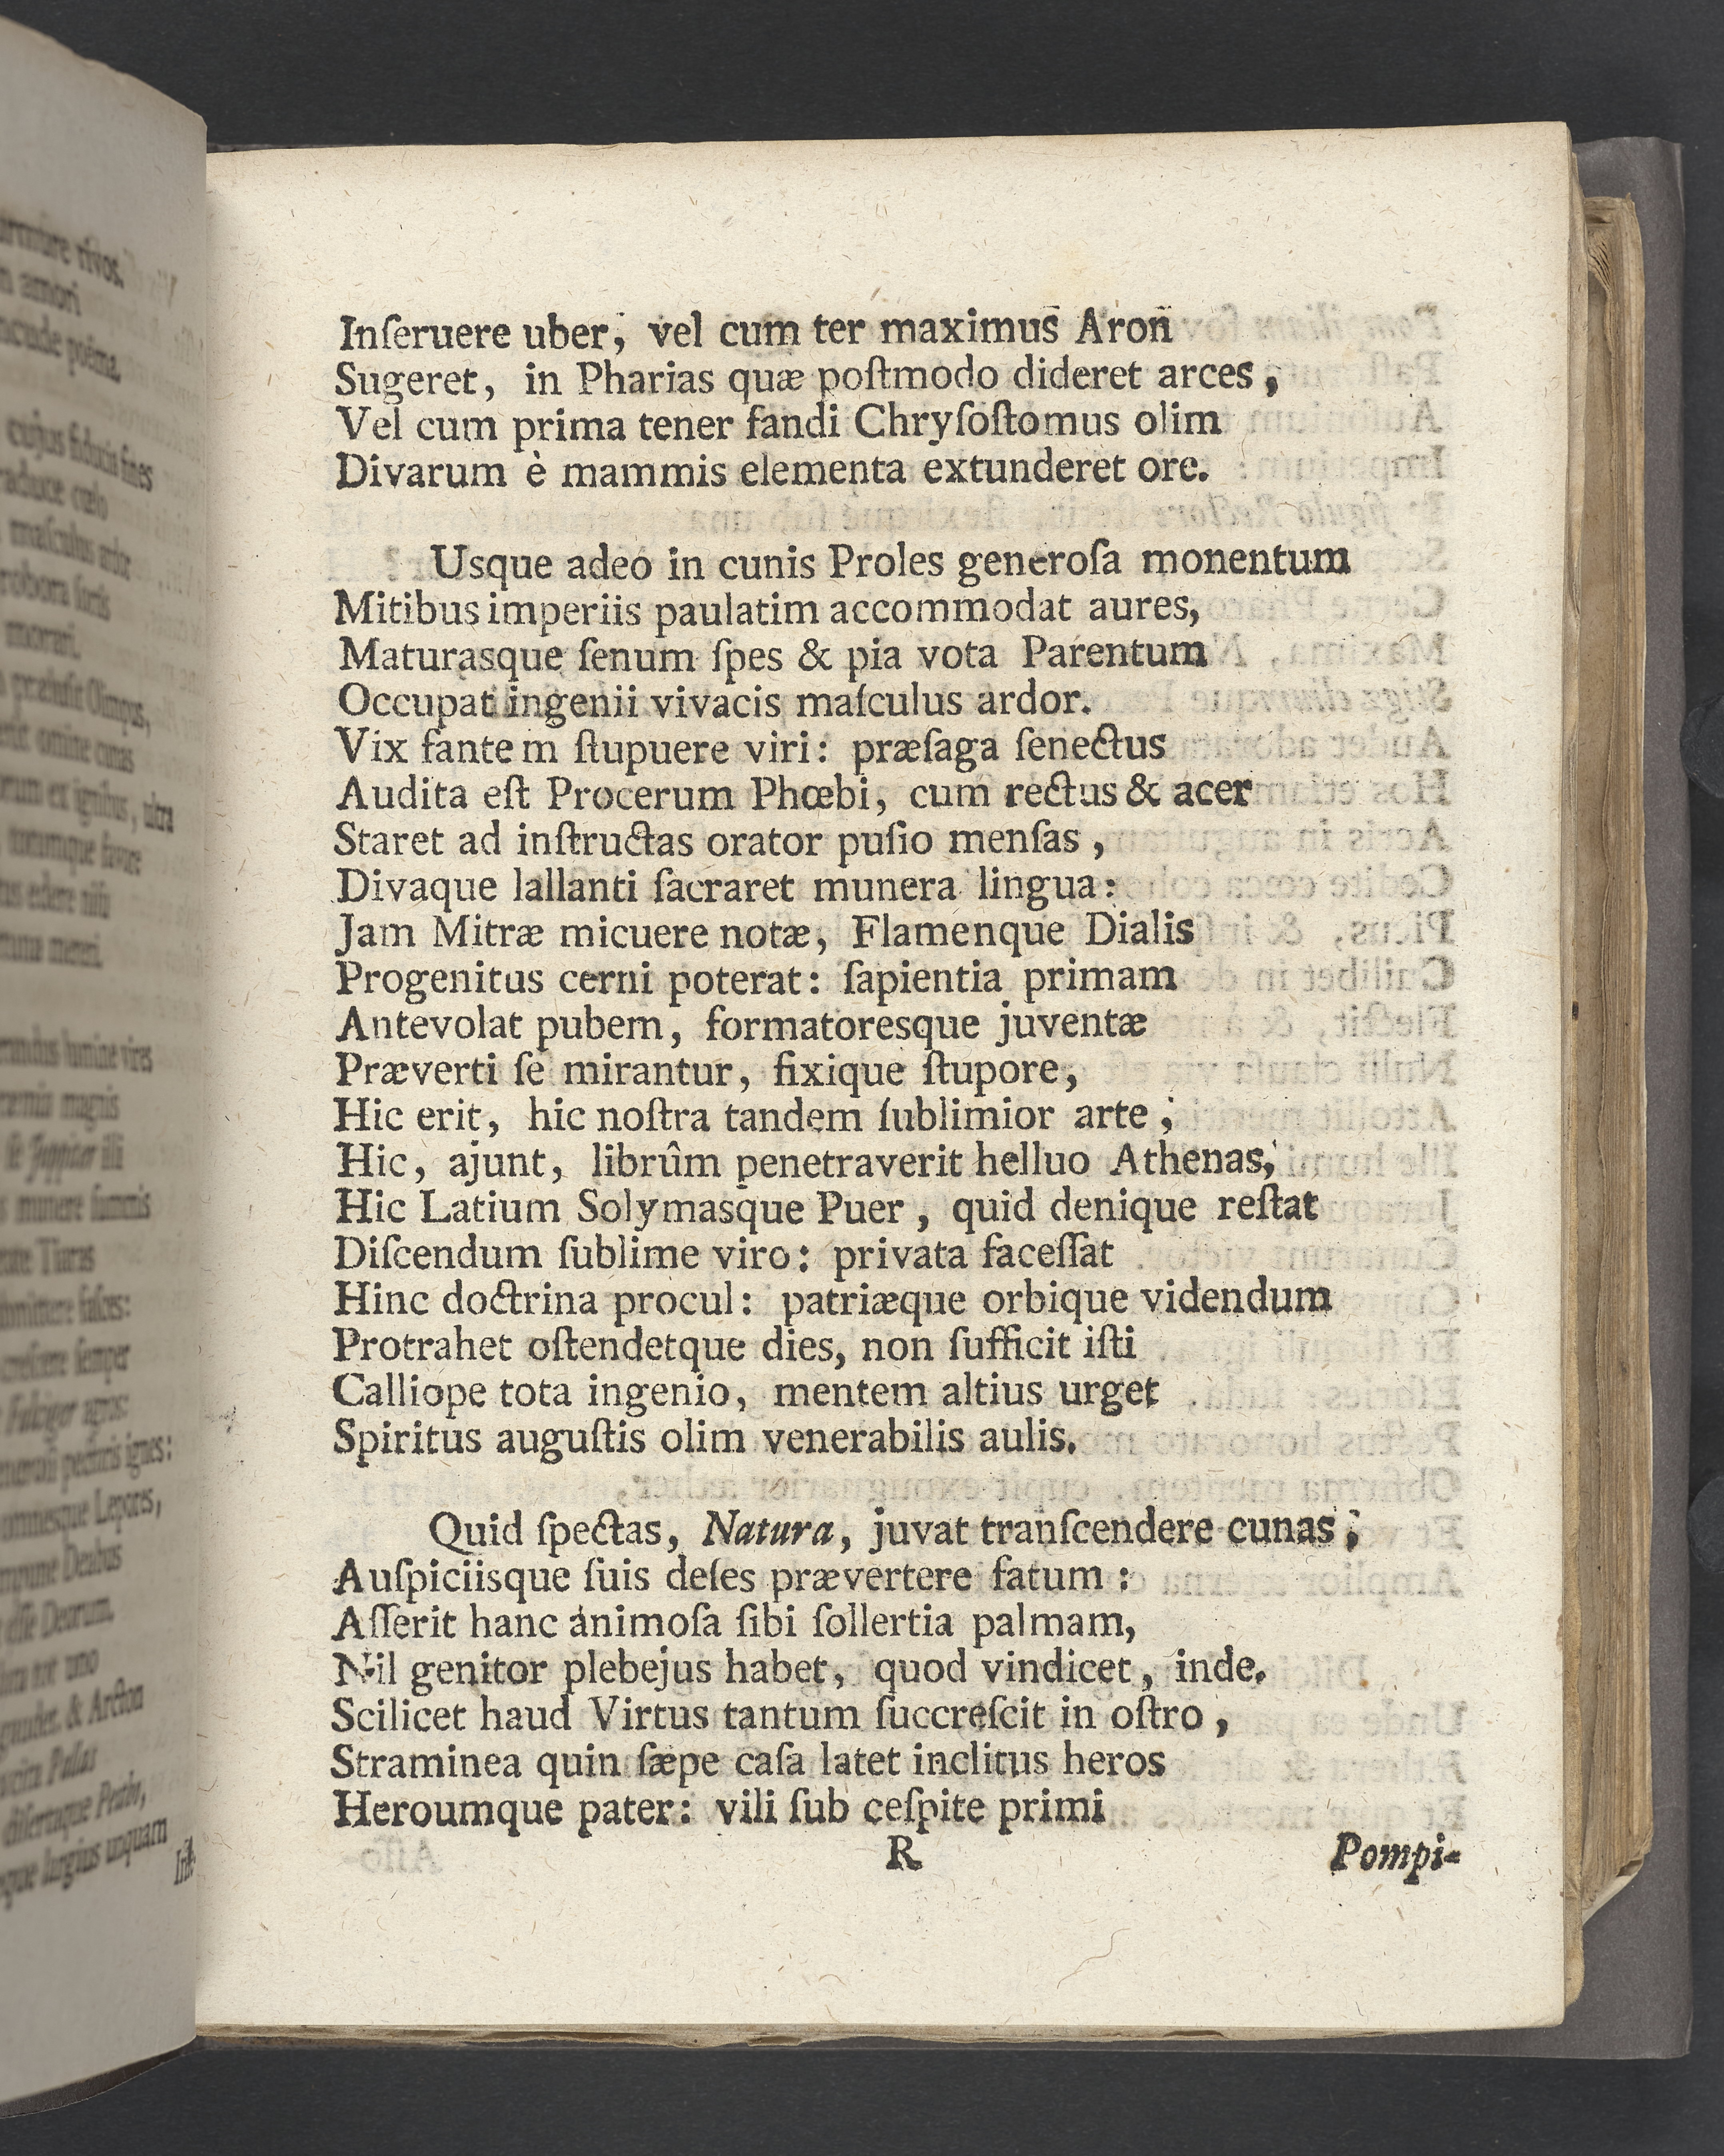 urmure rivos.
n amori
ncude poëma.
cujus fiducia fines
raduce cœlo
masculus arte
robora
morari.
Olimpus,
omine cunas
ex ignibus, ultra
favore
edere
lumine vires
magnis
& Juppiter illi
munere summis
Turis
submittere fasces:
crescere semper
pectoris ignes:
omnesque Lepores,
esse Deorum.
tot uno
& Arcton
Pallas
disertaque Pitho,
largius unquam
Inſeruere uber, vel cum ter maximus Aron
Sugeret, in Pharias quæ poſtmodo dideret arces,
Vel cum prima tener fandi Chryſoſtomus olim
Divarum è mammis elementa extunderet ore.
Usque adeo in cunis Proles generoſa monentum
Mitibus imperiis paulatim accommodat aures,
Maturasque ſenum ſpes & pia vota Parentum
Occupat ingenii vivacis maſculus ardor.
Vix fantem ſtupuere viri: præſaga ſenectus
Audita eſt Procerum Phœbi, cum rectus & acer
Staret ad inſtructas orator puſio menſas,
Divaque lallanti ſacraret munera lingua:
Jam Mitræ micuere notæ, Flamenque Dialis
Progenitus cerni poterat: ſapientia primam
Antevolat pubem, formatoresque juventæ
Præverti ſe mirantur, fixique ſtupore,
Hic erit, hic noſtra tandem ſublimior arte;
Hic, ajunt, librûm penetraverit helluo Athenas,
Hic Latium Solymasque Puer, quid denique reſtat
Diſcendum ſublime viro: privata faceſſat
Hinc doctrina procul: patriæque orbique videndum
Protrahet oſtendetque dies, non ſufficit iſti
Calliope tota ingenio, mentem altius urget
Spiritus auguſtis olim venerabilis aulis.
Quid ſpectas, Natura, juvat tranſcendere cunas;
Auſpiciisque ſuis deſes prævertere fatum:
Aſſerit hanc animoſa ſibi ſollertia palmam,
Nil genitor plebejus habet, quod vindicet, inde.
Scilicet haud Virtus tantum ſuccreſcit in oſtro,
Straminea quin ſæpe caſa latet inclitus heros
Heroumque pater: vili ſub ceſpite primi
R
Pompi-